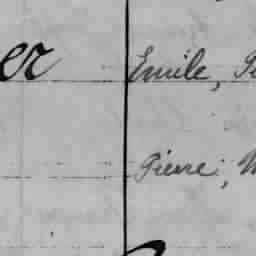 er Emile,
Pierre,